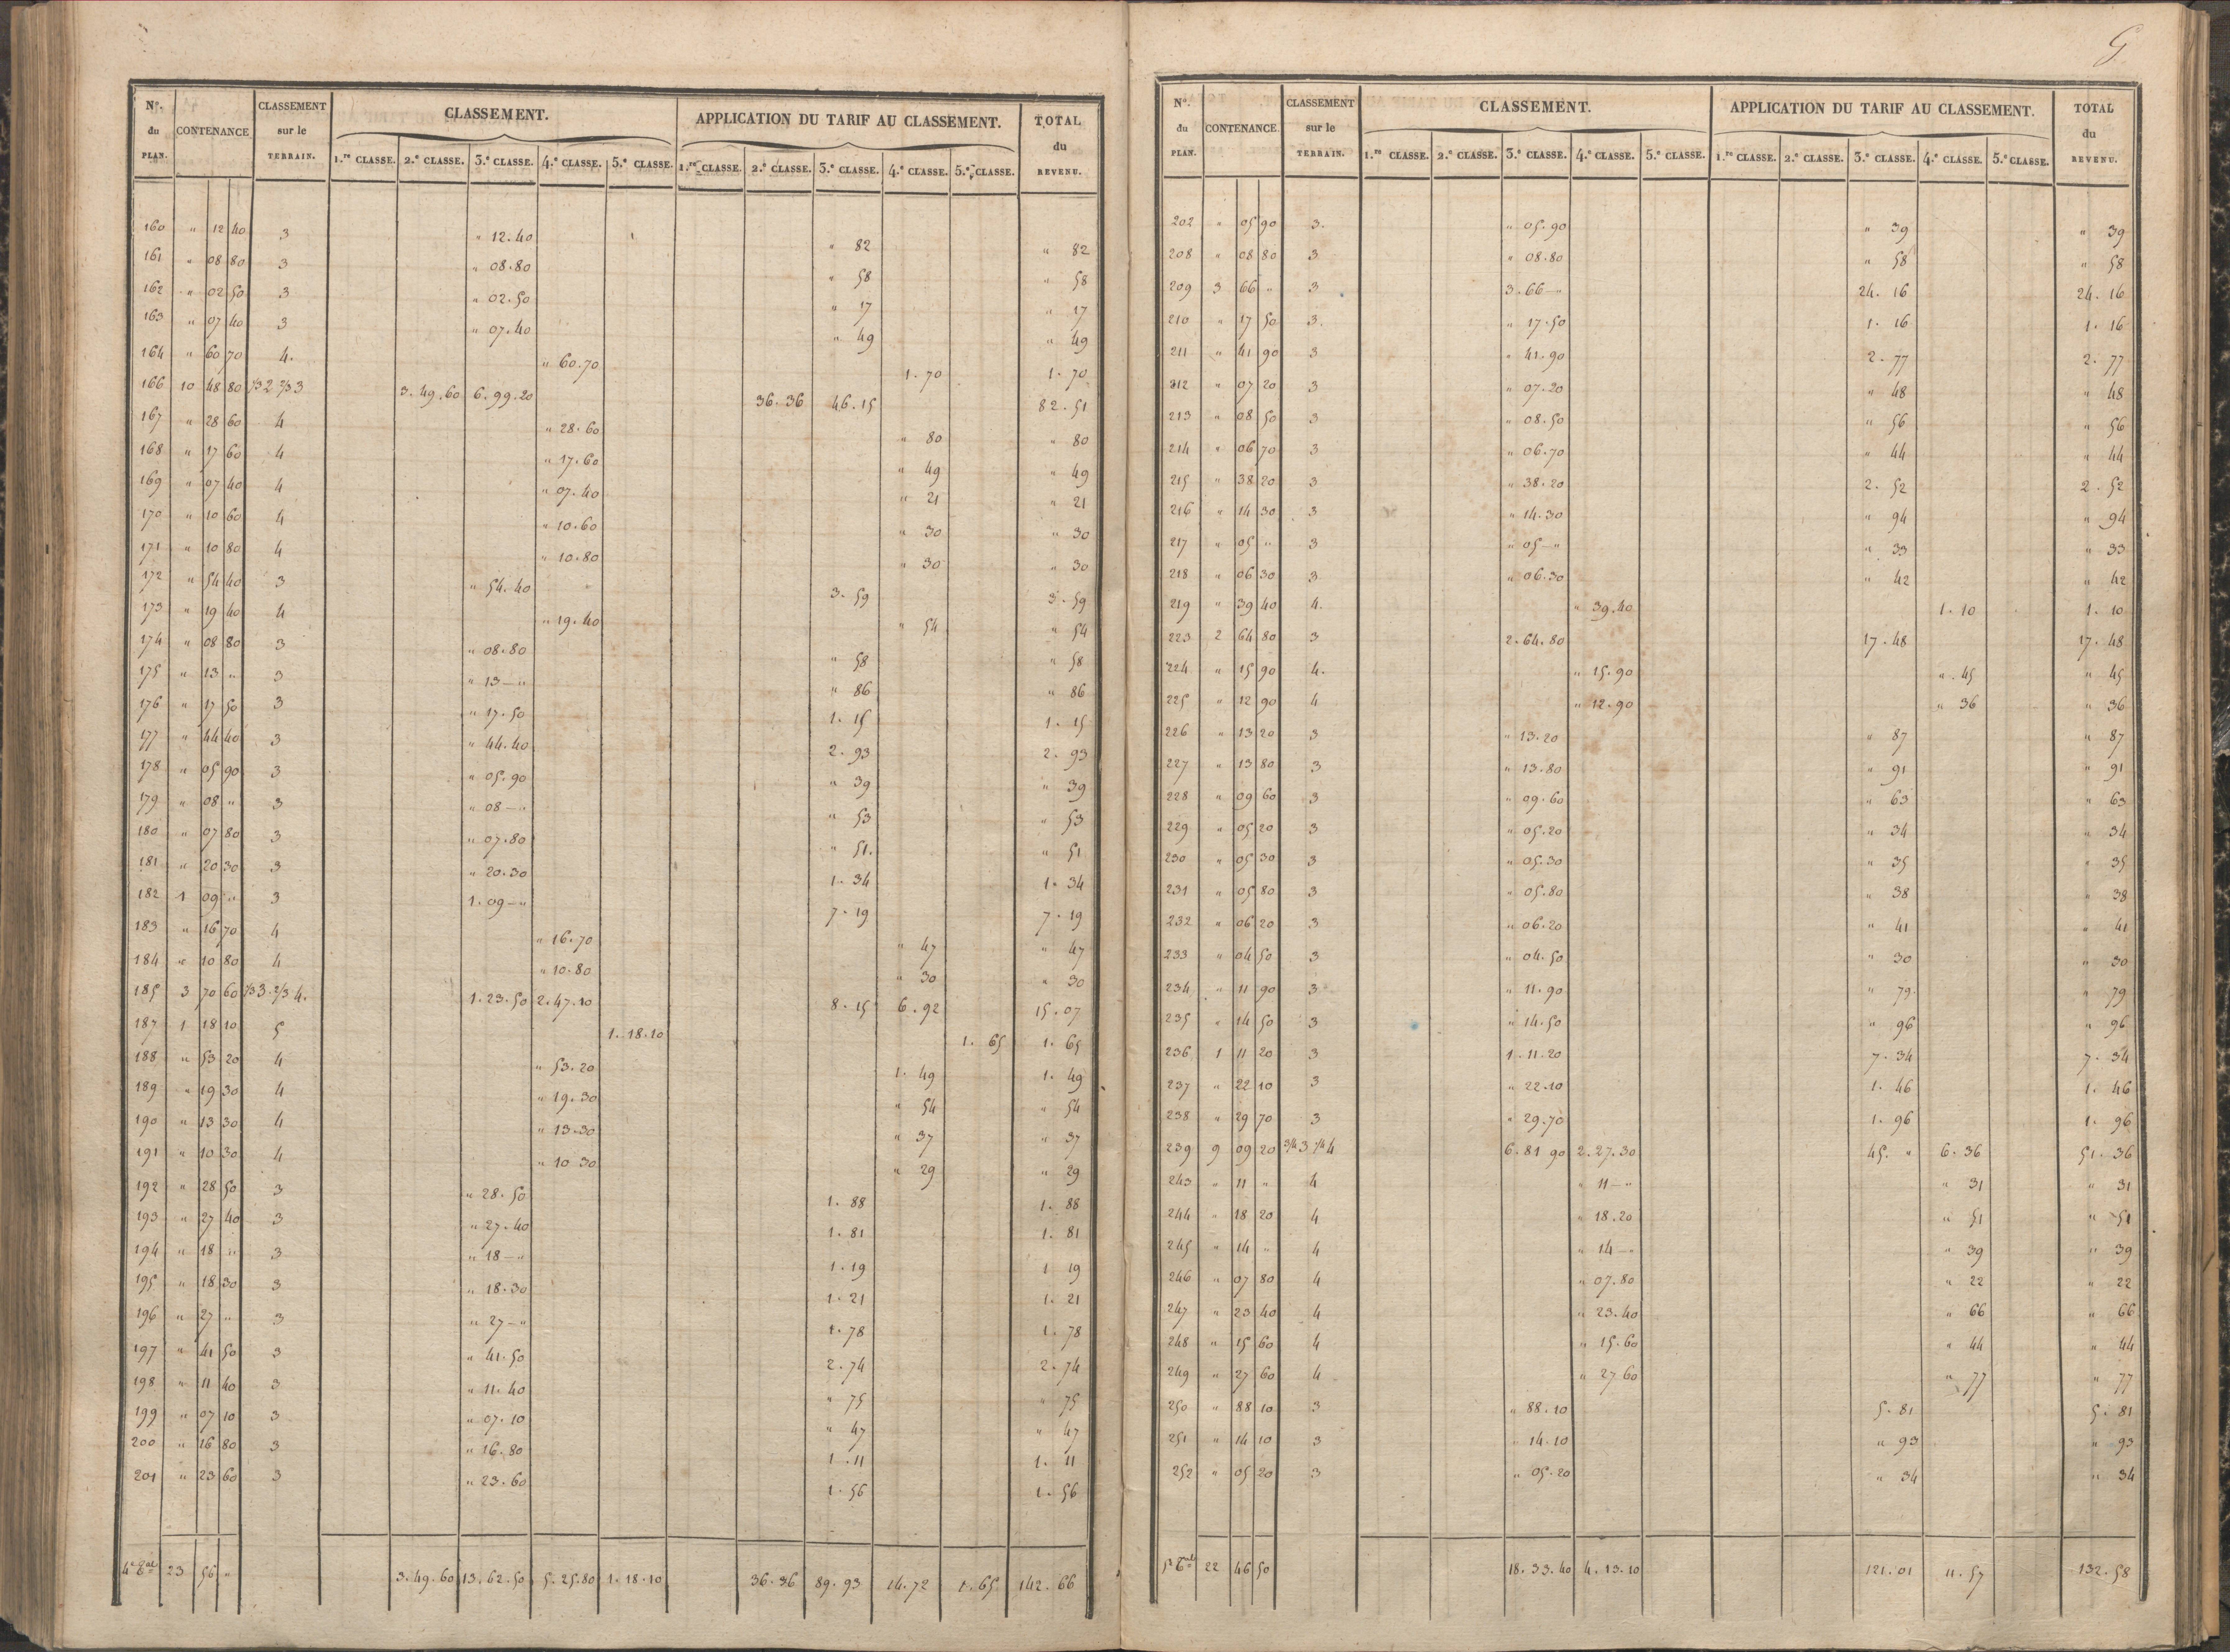 N°. du PLAN. CONTENANCE CLASSEMENT sur le TERRAIN. CLASSEMENT. APPLICATION DU TARIF AU CLASSEMENT. TOTAL du REVENU.
1.re CLASSE. 2.e CLASSE. 3.e CLASSE. 4.e CLASSE. 5.e CLASSE. 1.re CLASSE. 2.e CLASSE. 3.e CLASSE. 4.e CLASSE. 5.e CLASSE.
160 " 12 40 3 " 12.40 " 82 " 82
161 " 08 80 3 " 08.80 " 58 " 58
162 " 02 50 3 " 02.50 " 17 " 17
163 " 07 40 3 " 07.40 " 49 " 49
164 " 60 70 4. " 60.70 1.70 1.70
166 10 48 80 1/3 2 2/3 3 3.49.60 6.99.20 36.36 46.15 82.51
167 " 28 60 4 " 28.60 " 80 " 80
168 " 17 60 4 " 17.60 " 49 " 49
169 " 07 40 4 " 07.40 " 21 " 21
170 " 10 60 4 " 10.60 " 30 " 30
171 " 10 80 4 " 10.80 " 30 " 30
172 " 54 40 3 " 54.40 3.59 3.59
173 " 19 40 4 " 19.40 " 54 " 54
174 " 08 80 3 " 08.80 " 58 " 58
175 " 13 " 3 " 13 — " " 86 " 86
176 " 17 50 3 " 17.50 1.15 1.15
177 " 44 40 3 " 44.40 2.93 2.93
178 " 05 90 3 " 05.90 " 39 " 39
179 " 08 " 3 " 08 — " " 53 " 53
180 " 07 80 3 " 07.80 " 51. " 51
181 " 20 30 3 " 20.30 1.34 1.34
182 1 09 " 3 1.09 — " 7.19 7.19
183 " 16 70 4 " 16.70 " 47 " 47
184 " 10 80 4 " 10.80 " 30 " 30
185 3 70 60 1/3 3. 2/3 4. 1.23.50 2.47.10 8.15 6.92 15.07
187 1 18 10 5 1.18.10 1.65 1.65
188 " 53 20 4 " 53.20 1.49 1.49
189 " 19 30 4 " 19.30 " 54 " 54
190 " 13 30 4 " 13.30 " 37 " 37
191 " 10 30 4 " 10 30 " 29 " 29
192 " 28 50 3 " 28.50 1.88 1.88
193 " 27 40 3 " 27.40 1.81 1.81
194 " 18 " 3 " 18 — " 1.19 1 19
195 " 18 30 3 " 18.30 1.21 1.21
196 " 27 " 3 " 27 — " 1.78 1.78
197 " 41 50 3 " 41.50 2.74 2.74
198 " 11 40 3 " 11.40 " 75 " 75
199 " 07 10 3 " 07.10 " 47 " 47
200 " 16 80 3 " 16.80 1.11 1.11
201 " 23 60 3 " 23.60 1.56 1.56
23 56 " 3.49.60 13.62.50 5.25.80 1.18.10 36.36 89.93 14.72 1.65 142.66
N°. du PLAN. CONTENANCE. CLASSEMENT sur le TERRAIN. CLASSEMENT. APPLICATION DU TARIF AU CLASSEMENT. TOTAL du REVENU.
1.re CLASSE. 2.e CLASSE. 3.e CLASSE. 4.e CLASSE. 5.e CLASSE. 1.re CLASSE. 2.e CLASSE. 3.e CLASSE. 4.e CLASSE. 5.e CLASSE.
202 " 05 90 3. " 05.90 " 39 " 39
208 " 08 80 3 " 08.80 " 58 " 58
209 3 66 " 3 3.66 — " 24.16 24.16
210 " 17 50 3. " 17.50 1.16 1.16
211 " 41 90 3 " 41.90 2.77 2.77
212 " 07 20 3 " 07.20 " 48 " 48
213 " 08 50 3 " 08.50 " 56 " 56
214 " 06 70 3 " 06.70 " 44 " 44
215 " 38 20 3 " 38.20 2.52 2.52
216 " 14 30 3 " 14.30 " 94 " 94
217 " 05 " 3 " 05 — " " 33 " 33
218 " 06 30 3 " 06.30 " 42 " 42
219 " 39 40 4. " 39.40 1.10 1.10
223 2 64 80 3 2.64.80 17.48 17.48
224 " 15 90 4. " 15.90 " 45 " 45
225 " 12 90 4 " 12.90 " 36 " 36
226 " 13 20 3 " 13.20 " 87 " 87
227 " 13 80 3 " 13.80 " 91 " 91
228 " 09 60 3 " 09.60 " 63 " 63
229 " 05 20 3 " 05.20 " 34 " 34
230 " 05 30 3 " 05.30 " 35 " 35
231 " 05 80 3 " 05.80 " 38 " 38
232 " 06 20 3 " 06.20 " 41 " 41
233 " 04 50 3 " 04.50 " 30 " 30
234 " 11 90 3 " 11.90 " 79. " 79
235 " 14 50 3 " 14.50 " 96 " 96
236 1 11 20 3 1.11.20 7.34 7.34
237 " 22 10 3 " 22.10 1.46 1.46
238 " 29 70 3 " 29.70 1.96 1.96
239 9 09 20 3/4 3 1/4 4 6.81 90 2.27.30 45. " 6.36 51.36
243 " 11 " 4 " 11 — " " 31 " 31
244 " 18 20 4 " 18.20 " 51 " 51
245 " 14 " 4 " 14 — " " 39 " 39
246 " 07 80 4 " 07.80 " 22 " 22
247 " 23 40 4 " 23.40 " 66 " 66
248 " 15 60 4 " 15.60 " 44 " 44
249 " 27 60 4 " 27 60 " 77 " 77
250 " 88 10 3 " 88.10 5.81 5.81
251 " 14 10 3 " 14.10 " 93 " 93
252 " 05 20 3 " 05.20 " 34 " 34
22 46 50 18.33.40 4.13.10 121.01 11.57 132.58